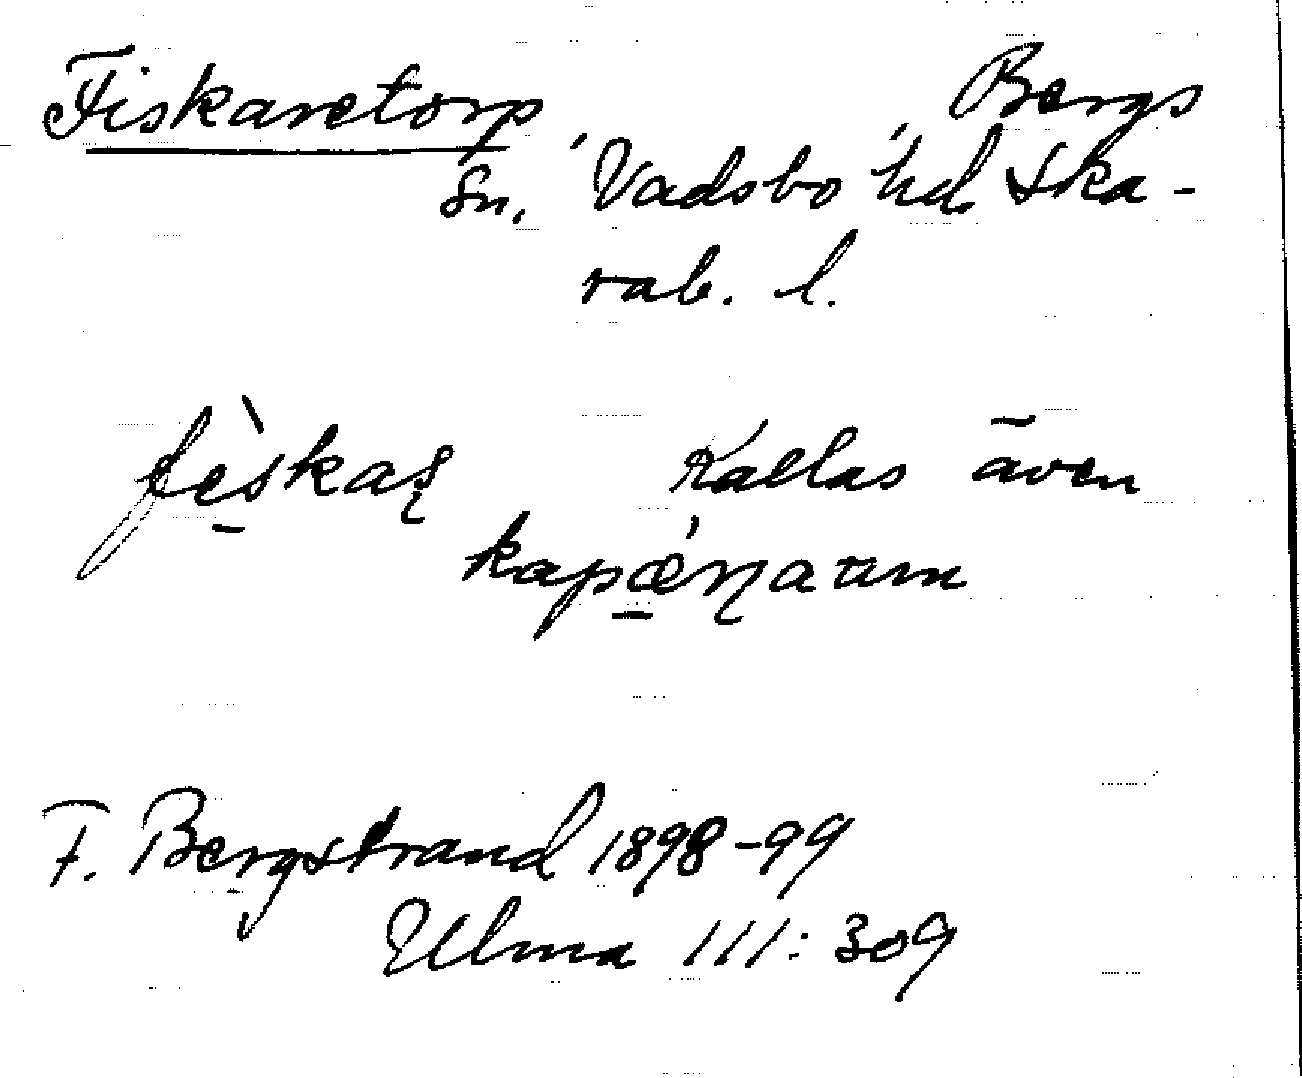 Fiskaretorp, Bergs
Sn, Vadsbo hd Ska-
rab. l.
fèskaʂ Kallas även
kapǽɳaům
F. Bergstrand 1898-99
Ulma 111:309